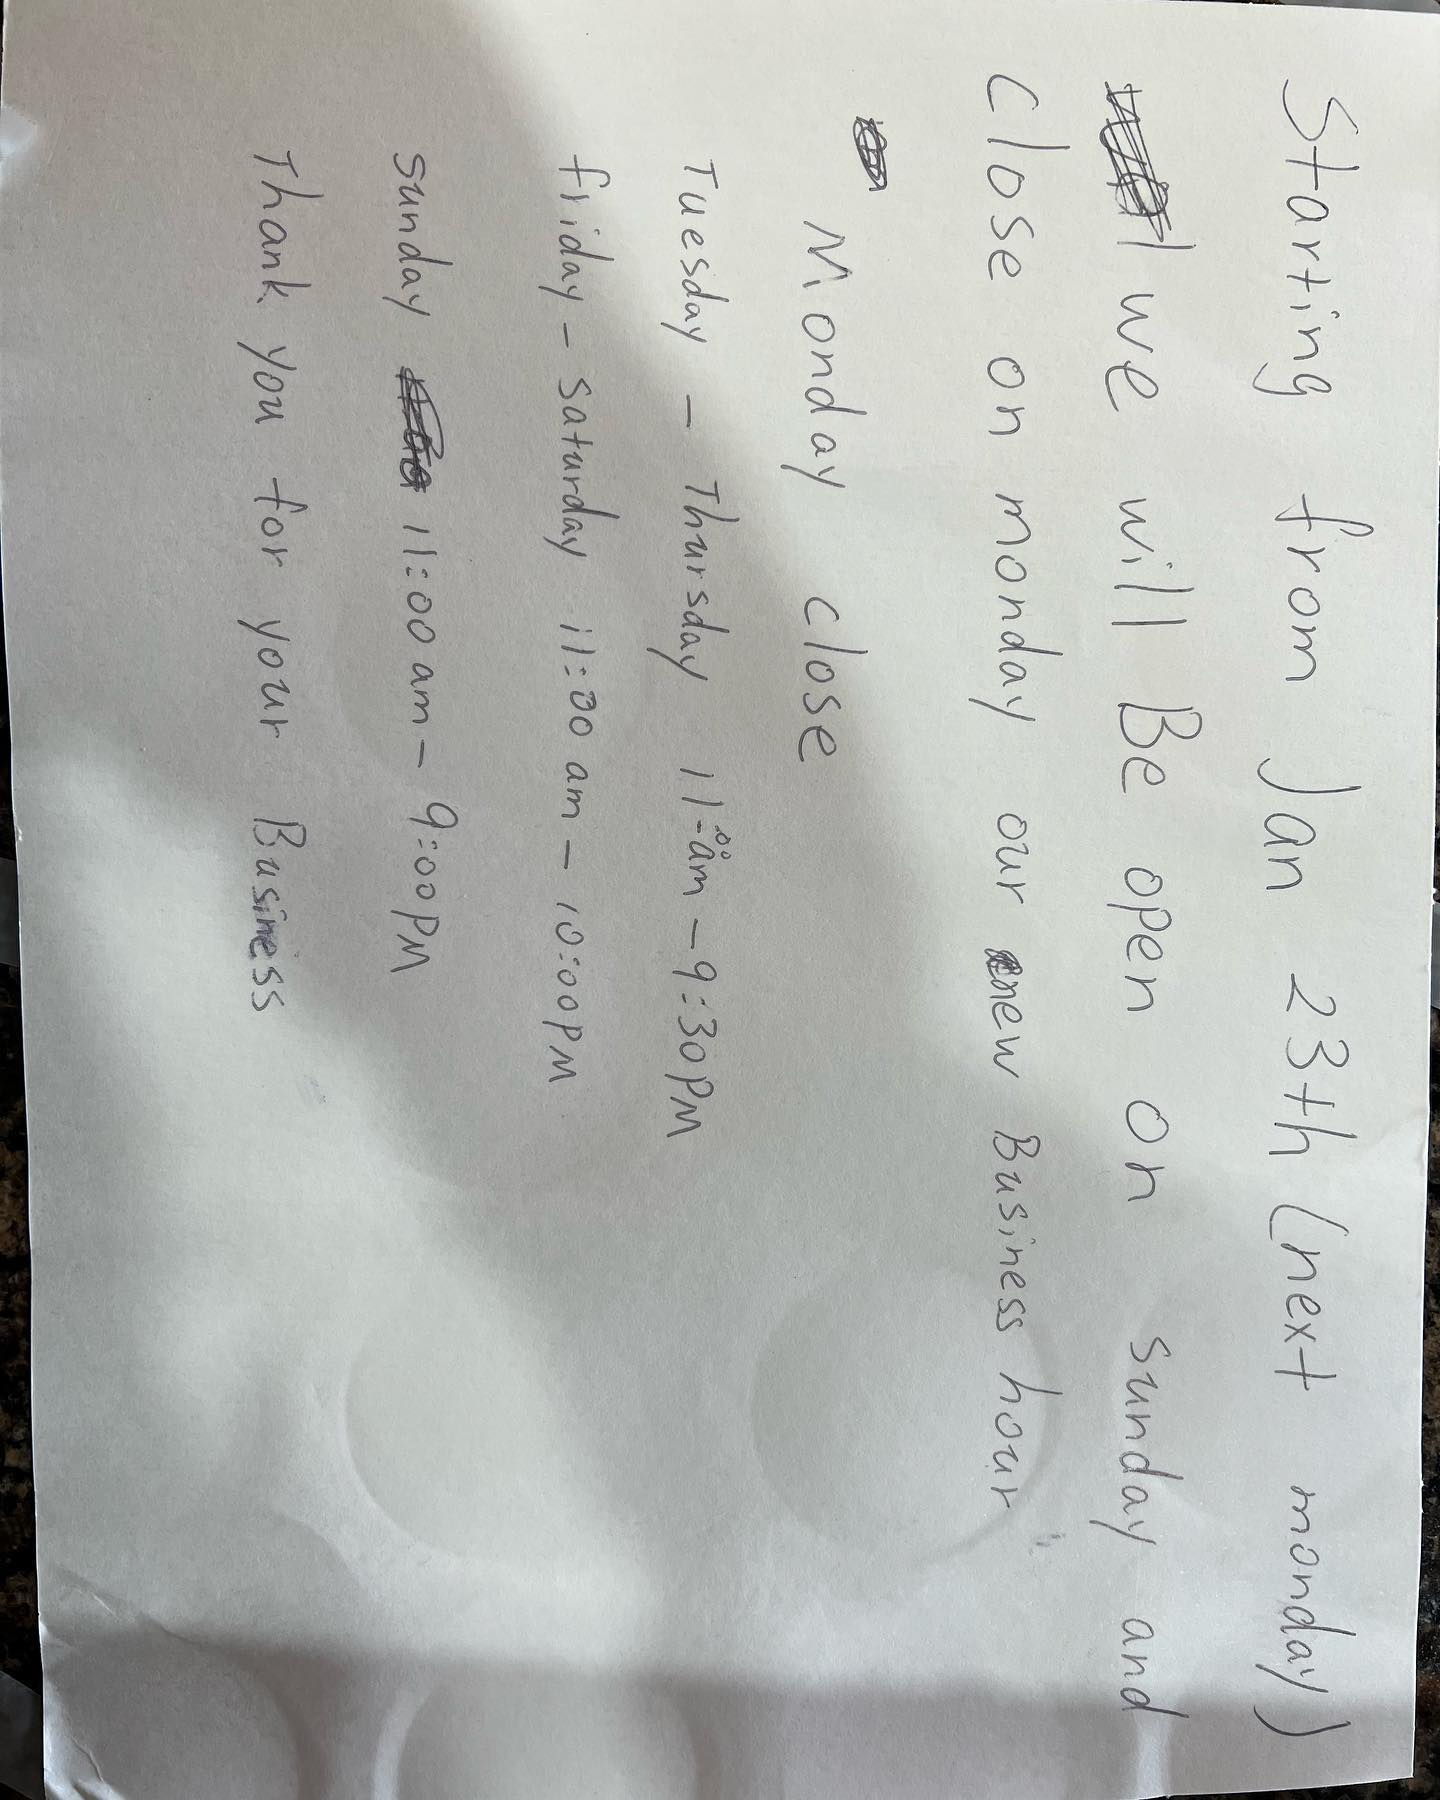 Starting from Jan 23th (next monday)
we will Be open on sunday and
close on monday our new Business hour
Monday close
Tuesday - Thursday 11:00am - 9:30PM
friday - saturday 11:00 am - 10:00PM
sunday 11:00 am - 9:00PM
Thank you for your Business